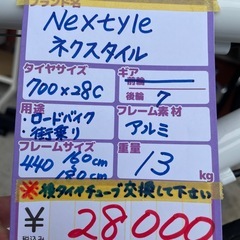 ブランド名
Nextyle
ネクスタイル
タイヤサイズ
700×28C
ギア
前輪
後輪 7
用途
・ロードバイク
・街乗り
フレーム素材
アルミ
フレームサイズ
440 160cm
180cm
重量
13 kg
※後タイヤチューブ交換して下さい
¥
28000